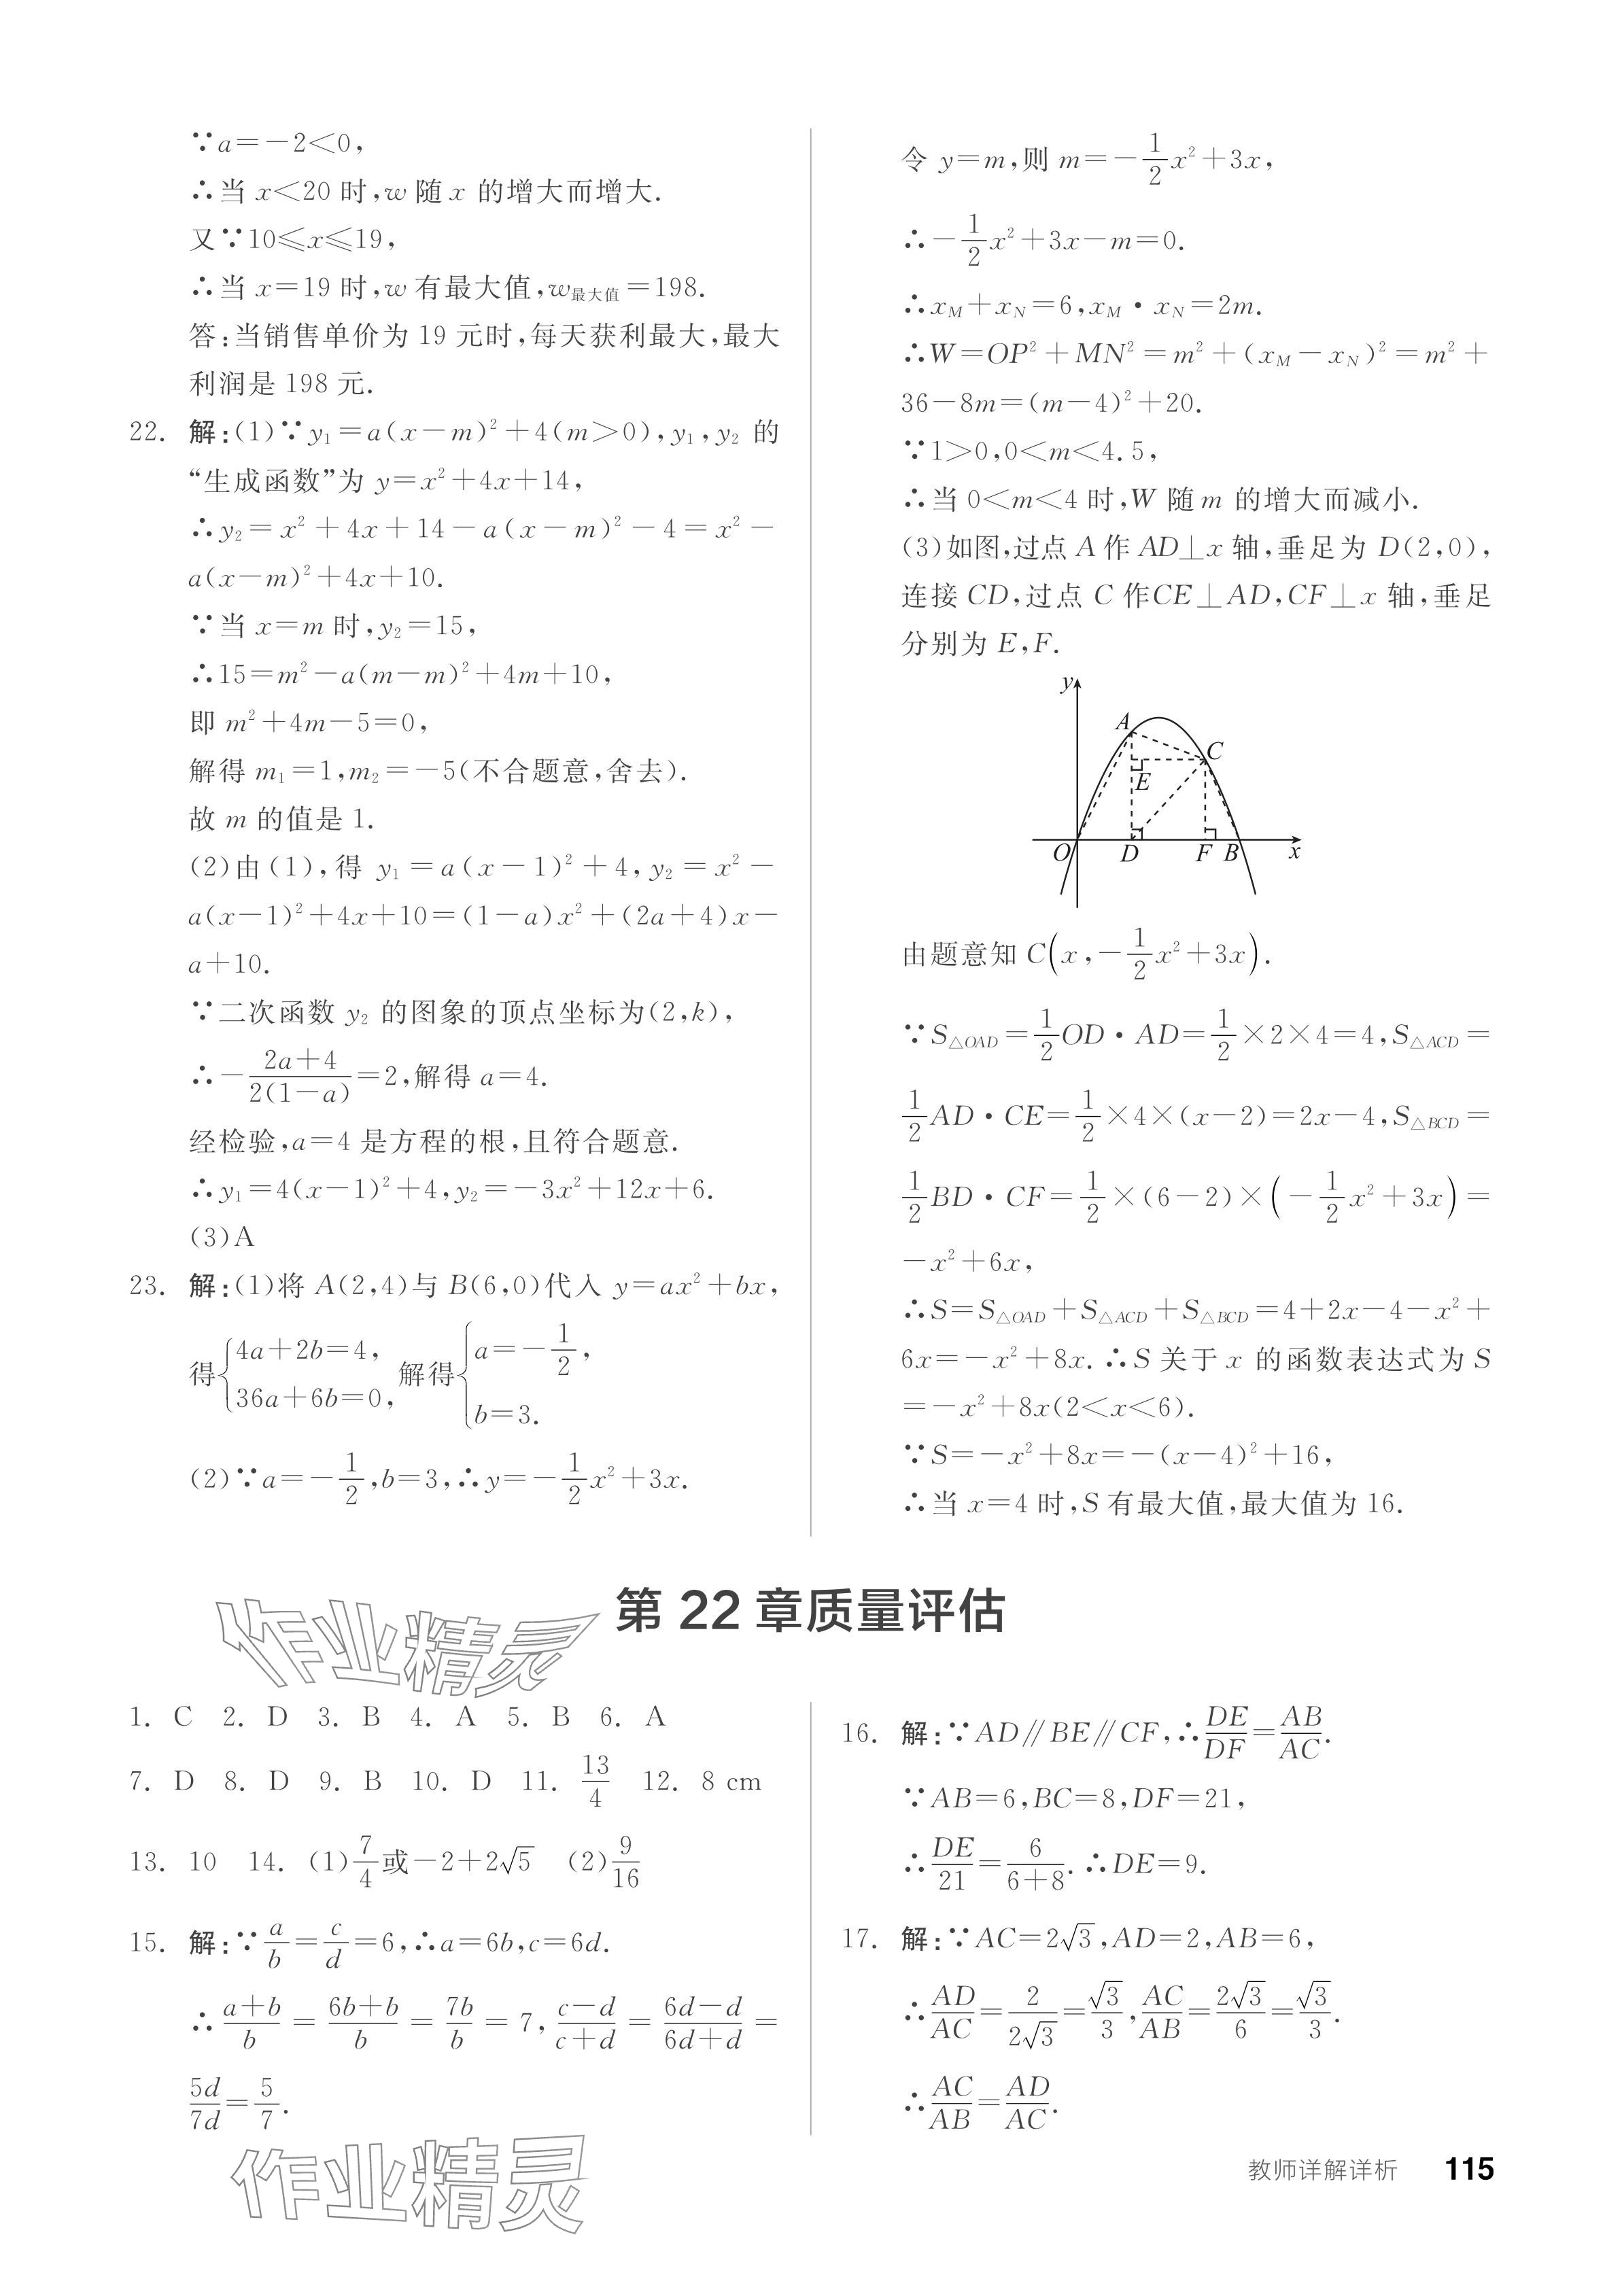 ∵a=-2<0,
∴当 x<20 时,w 随 x 的增大而增大.
又∵10≤x≤19,
∴当 x=19 时,w 有最大值,w最大值=198.
答:当销售单价为 19 元时,每天获利最大,最大
利润是 198 元.
22. 解:(1)∵y₁=a(x-m)²+4(m>0),y₁,y₂ 的
“生成函数”为 y=x²+4x+14,
∴y₂=x²+4x+14-a(x-m)²-4=x²-
a(x-m)²+4x+10.
∵当 x=m 时,y₂=15,
∴15=m²-a(m-m)²+4m+10,
即 m²+4m-5=0,
解得 m₁=1,m₂=-5(不合题意,舍去).
故 m 的值是 1.
(2)由(1),得 y₁=a(x-1)²+4,y₂=x²-
a(x-1)²+4x+10=(1-a)x²+(2a+4)x-
a+10.
∵二次函数 y₂ 的图象的顶点坐标为(2,k),
∴-\frac{2a+4}{2(1-a)}=2,解得 a=4.
经检验,a=4 是方程的根,且符合题意.
∴y₁=4(x-1)²+4,y₂=-3x²+12x+6.
(3)A
23. 解:(1)将 A(2,4)与 B(6,0)代入 y=ax²+bx,
得{4a+2b=4, 36a+6b=0, 解得{a=-\frac{1}{2}, b=3.
(2)∵a=-\frac{1}{2},b=3,∴y=-\frac{1}{2}x²+3x.
令 y=m,则 m=-\frac{1}{2}x²+3x,
∴-\frac{1}{2}x²+3x-m=0.
∴x_M+x_N=6,x_M·x_N=2m.
∴W=OP²+MN²=m²+(x_M-x_N)²=m²+
36-8m=(m-4)²+20.
∵1>0,0<m<4.5,
∴当 0<m<4 时,W 随 m 的增大而减小.
(3)如图,过点 A 作 AD⊥x 轴,垂足为 D(2,0),
连接 CD,过点 C 作CE⊥AD,CF⊥x 轴,垂足
分别为 E,F.
y
A
C
E
O D F B x
由题意知 C(x,-\frac{1}{2}x²+3x).
∵S△OAD=\frac{1}{2}OD·AD=\frac{1}{2}×2×4=4,S△ACD=
\frac{1}{2}AD·CE=\frac{1}{2}×4×(x-2)=2x-4,S△BCD=
\frac{1}{2}BD·CF=\frac{1}{2}×(6-2)×(-\frac{1}{2}x²+3x)=
-x²+6x,
∴S=S△OAD+S△ACD+S△BCD=4+2x-4-x²+
6x=-x²+8x.∴S 关于 x 的函数表达式为 S
=-x²+8x(2<x<6).
∵S=-x²+8x=-(x-4)²+16,
∴当 x=4 时,S 有最大值,最大值为 16.
作业精灵
第 22 章质量评估
1. C 2. D 3. B 4. A 5. B 6. A
7. D 8. D 9. B 10. D 11. \frac{13}{4} 12. 8 cm
13. 10 14. (1)\frac{7}{4}或-2+2√5 (2)\frac{9}{16}
15. 解:∵\frac{a}{b}=\frac{c}{d}=6,∴a=6b,c=6d.
∴\frac{a+b}{b}=\frac{6b+b}{b}=\frac{7b}{b}=7,\frac{c-d}{c+d}=\frac{6d-d}{6d+d}=
\frac{5d}{7d}=\frac{5}{7}.
16. 解:∵AD∥BE∥CF,∴\frac{DE}{DF}=\frac{AB}{AC}.
∵AB=6,BC=8,DF=21,
∴\frac{DE}{21}=\frac{6}{6+8}.∴DE=9.
17. 解:∵AC=2√3,AD=2,AB=6,
∴\frac{AD}{AC}=\frac{2}{2√3}=\frac{√3}{3},\frac{AC}{AB}=\frac{2√3}{6}=\frac{√3}{3}.
∴\frac{AC}{AB}=\frac{AD}{AC}.
作业精灵
教师详解详析 115